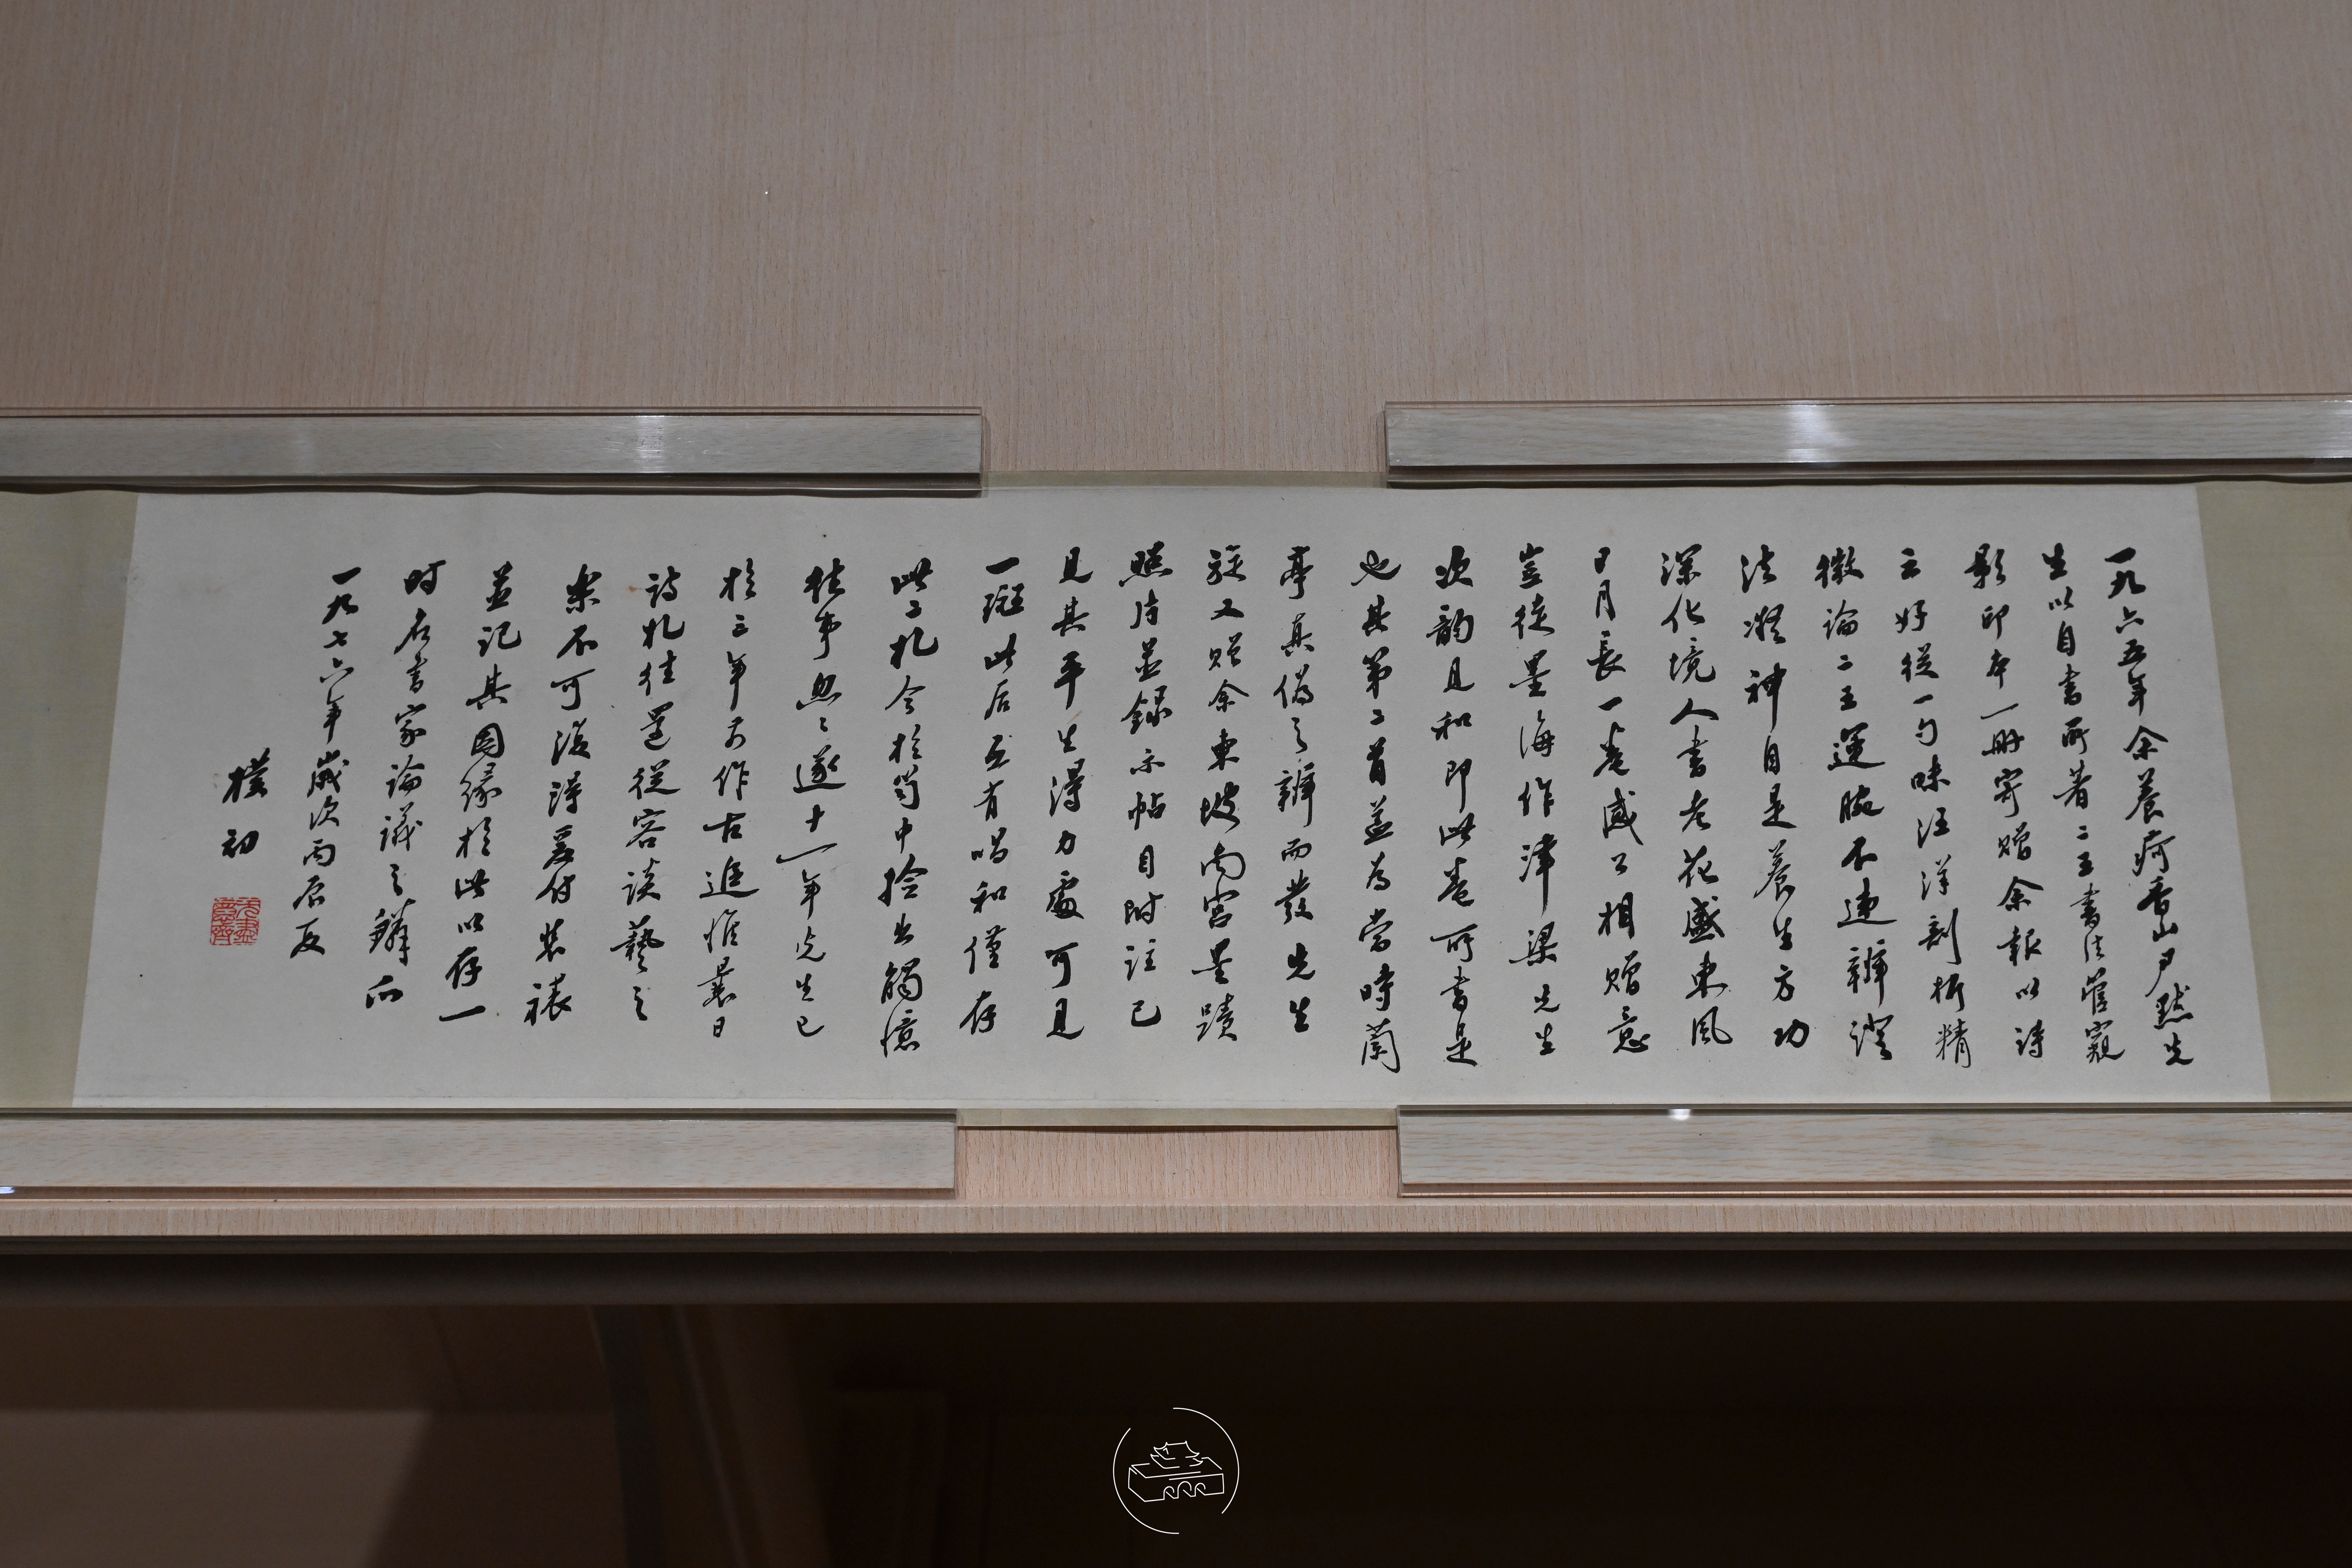 一九六五年余養疴香山尹默先
生以自書所著二王書法管窺
影印本一冊寄贈余報以詩
云好從一勺味汪洋剖析精
微論二王運腕不違辯證
法凝神自是養生方功
深化境人書老花盛東風
日月長一卷感公相贈意
豈徒墨海作津梁先生
次韵見和即此卷所書是
也其第二首蓋為當時蘭
亭真偽之辯而發先生
旋又贈余東坡南宮墨蹟
照片並錄示帖目附註已
見其平生得力處可見
一斑此后互有唱和僅存
此二札今於笥中撿出觸憶
往事忽々遂十一年先生已
於三年前作古追惟曩日
詩札往還從容談藝之
樂不可復得爰付裝裱
並記其因緣於此以存一
时名書家論議之鱗爪
一九七六年歲次丙辰夏
樸初